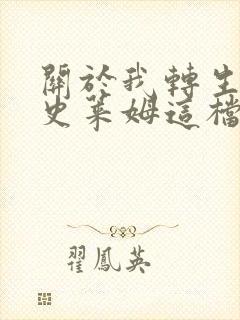 關於我轉生
史萊姆這檔
翟鳳英